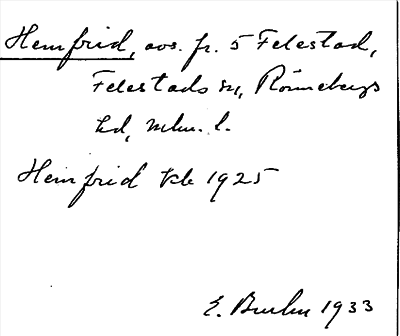 Hemfrid, avs. fr. 5 Felestad,
Felestads sn, Rönnebergs
hd, Mlm. l.
Hemfrid Kb 1925
E. 1933